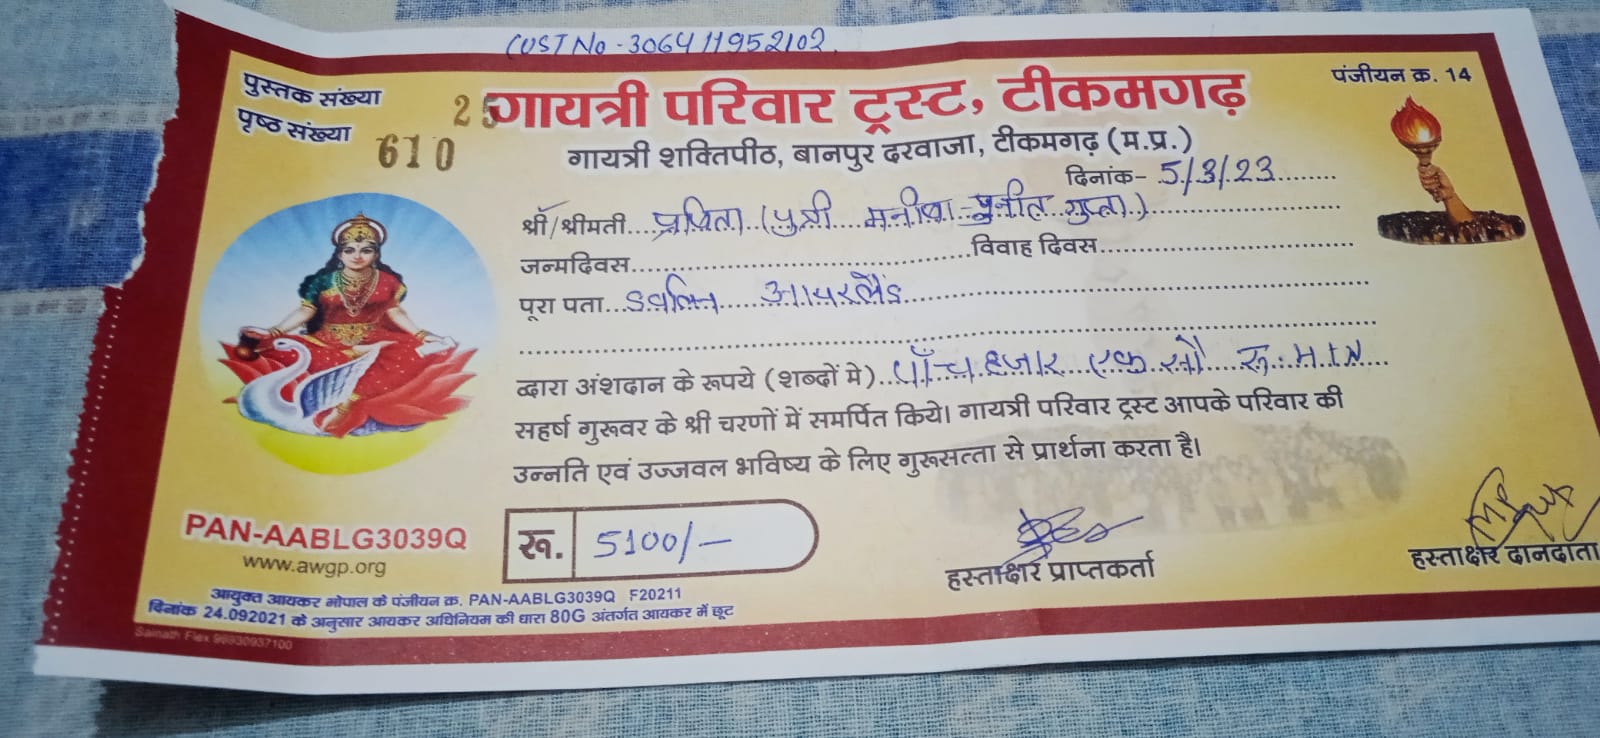 CUST No - 306411952102
पुस्तक संख्या 25
पृष्ठ संख्या 610
गायत्री परिवार ट्रस्ट, टीकमगढ़
पंजीयन क्र. 14
गायत्री शक्तिपीठ, बानपुर दरवाजा, टीकमगढ़ (म.प्र.)
दिनांक- 5/3/23
श्री/श्रीमती (पुत्री मनीषा-पुनीत गुप्ता)
जन्मदिवस विवाह दिवस
पूरा पता डबलिन आयरलैंड
द्वारा अंशदान के रूपये (शब्दों मे) पाँच हजार एक सौ रू.
सहर्ष गुरूवर के श्री चरणों में समर्पित किये। गायत्री परिवार ट्रस्ट आपके परिवार की
उन्नति एवं उज्जवल भविष्य के लिए गुरूसत्ता से प्रार्थना करता है।
PAN-AABLG3039Q
www.awgp.org
रू. 5100/-
हस्ताक्षर प्राप्तकर्ता
हस्ताक्षर दानदाता
आयुक्त आयकर भोपाल के पंजीयन क्र. PAN-AABLG3039Q F20211
दिनांक 24.092021 के अनुसार आयकर अधिनियम की धारा 80G अंतर्गत आयकर में छूट
Sainath Flex 98930937100